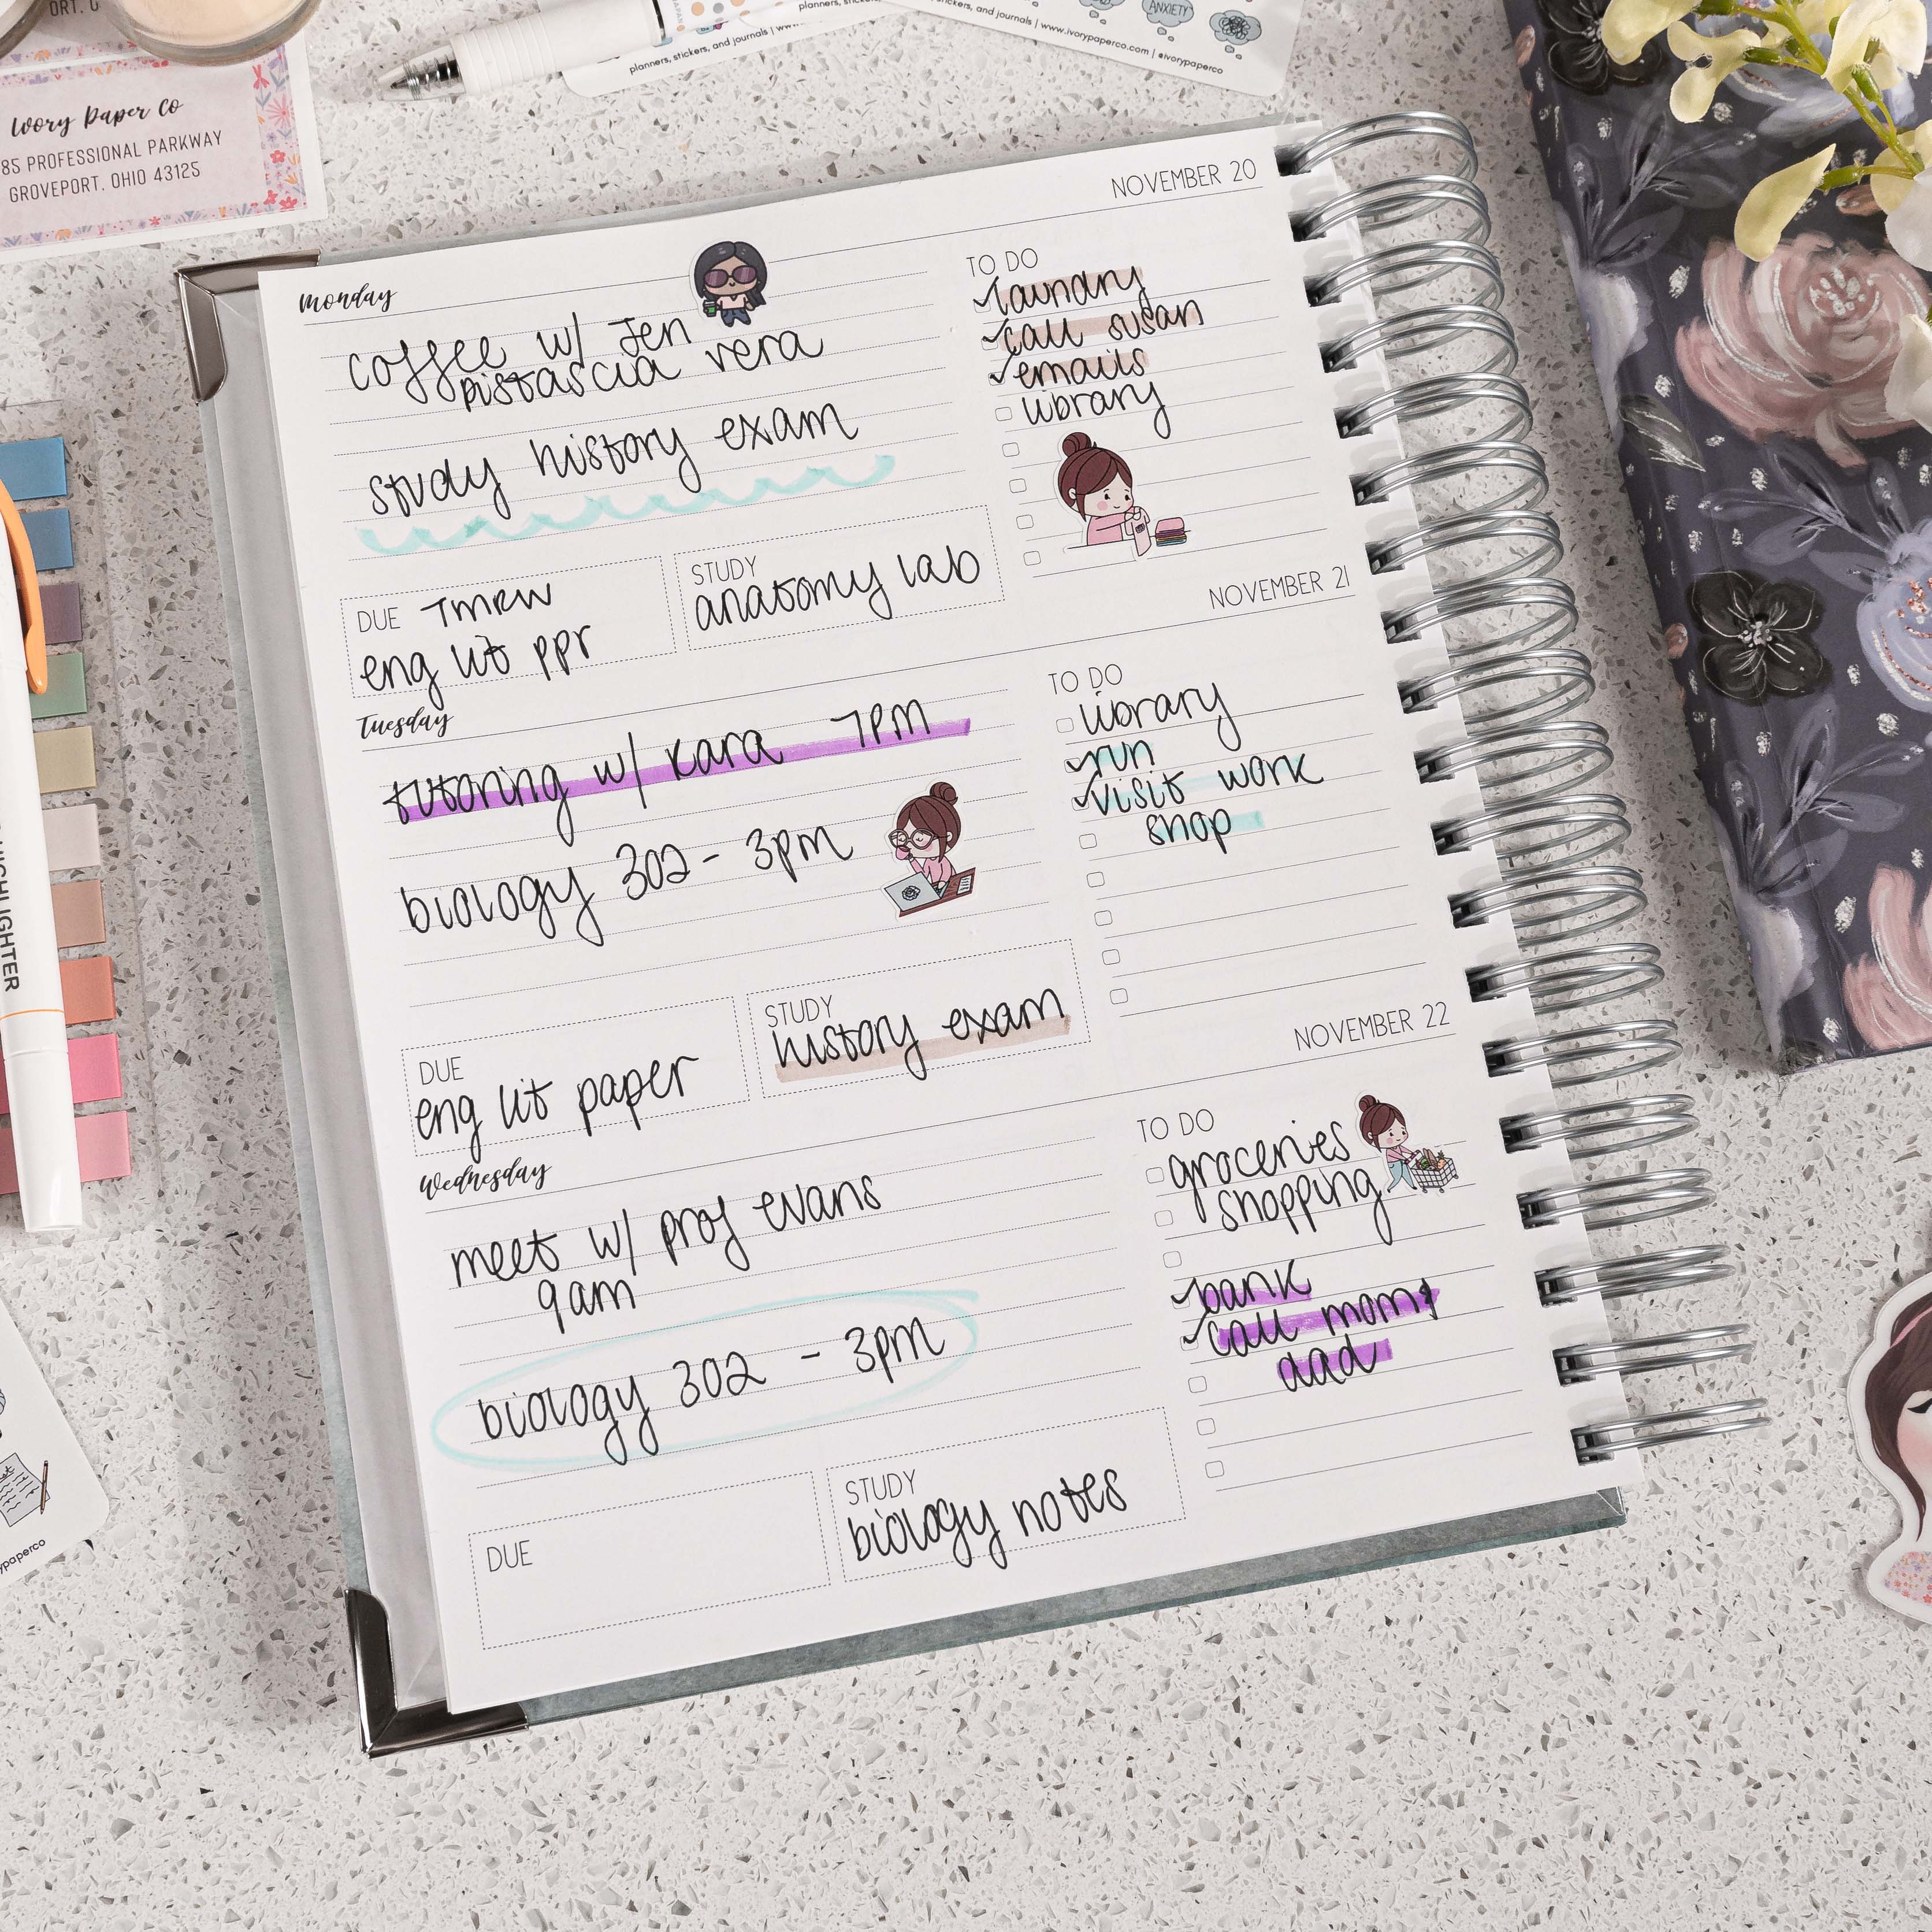 ORT, O
Ivory Paper Co
85 PROFESSIONAL PARKWAY
GROVEPORT, OHIO 43125
planners, stickers, and journals |
and journals | www.ivorypaperco.com | @ivorypaperco
ANXIETY
HIGHLIGHTER
NOVEMBER 20
monday
coffee w/ Jen
pistascia vera
study history exam
DUE TMRW
eng lit ppr
STUDY
anatomy lab
TO DO
laundry
call susan
emails
library
NOVEMBER 21
Tuesday
tutoring w/ Kara 7PM
biology 302 - 3pm
DUE
eng lit paper
STUDY
history exam
TO DO
library
run
visit work
shop
NOVEMBER 22
Wednesday
meet w/ prof evans
9am
biology 302 - 3pm
DUE
STUDY
biology notes
TO DO
groceries
shopping
bank
call mom &
dad
ypaperco